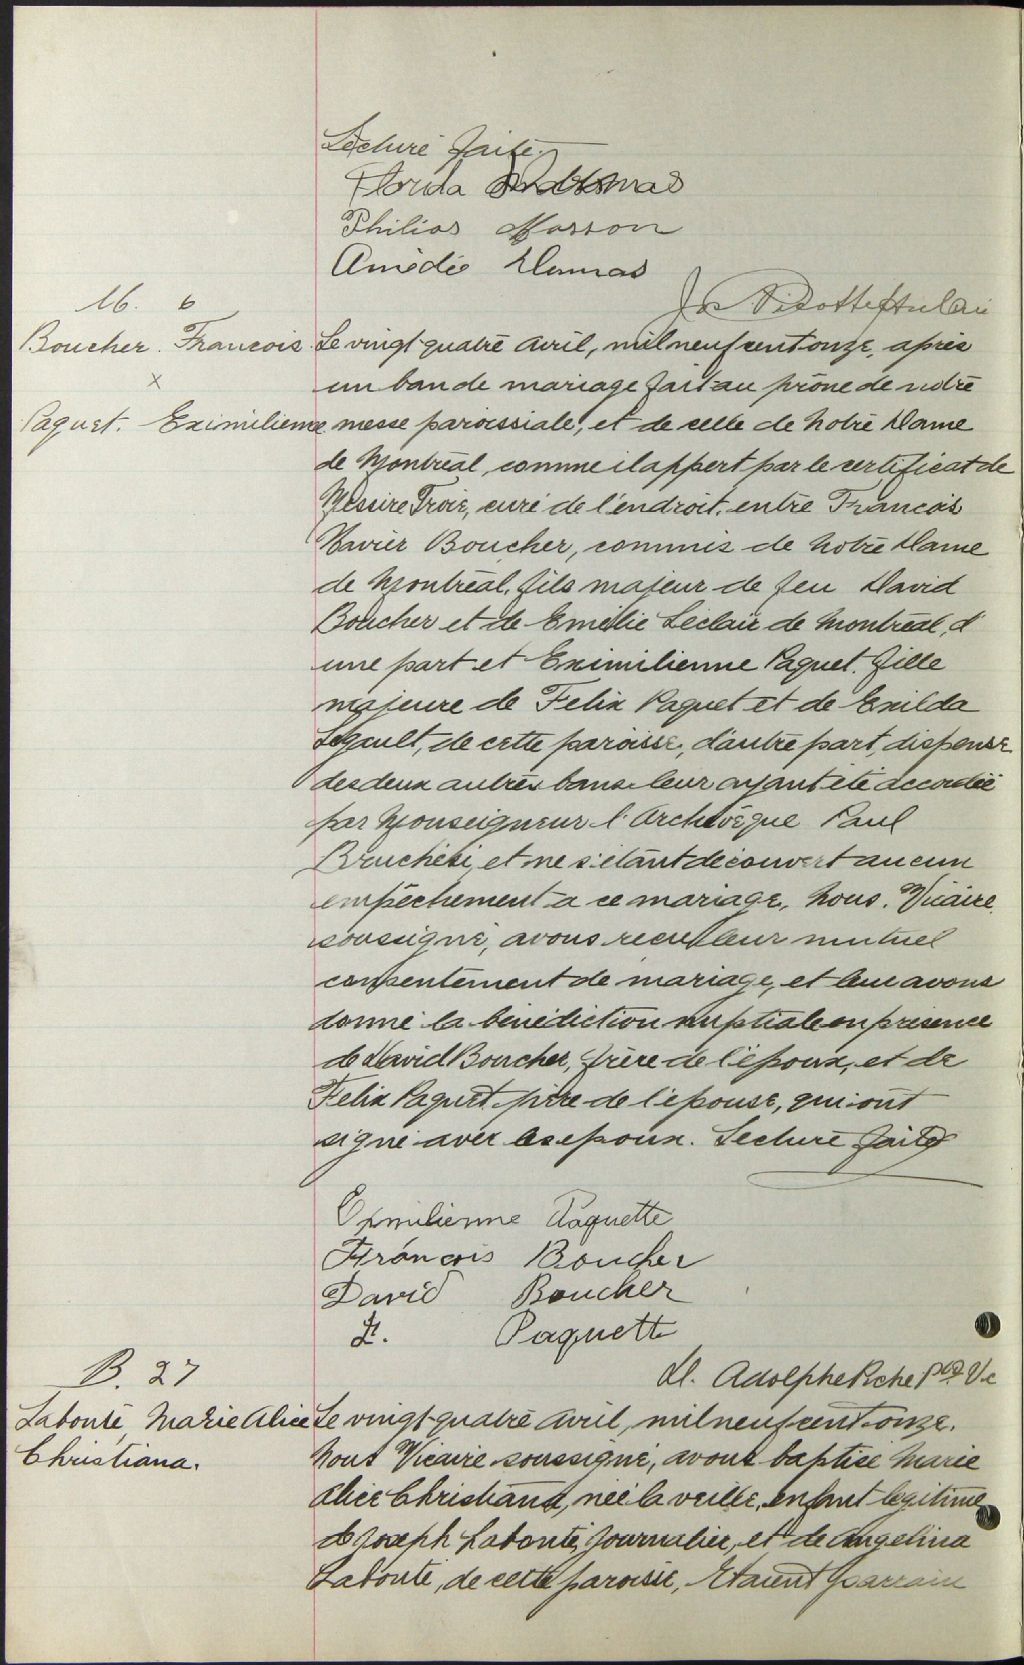 Lecture faite.
Florida
Philias Masson
Amédée Dumas
Jos
M. 6
Boucher. Francois
X
Paquet. Eximilienne
Le vingt-quatre avril, mil neuf cent onze, après
un ban de mariage fait au prône de notre
messe paroissiale, et de celle de Notre Dame
de Montréal, comme il appert par le certificat de
Messire Troie, curé de l'endroit, entre Francois
Xavier Boucher, commis de Notre Dame
de Montréal, fils majeur de feu David
Boucher et de Emélie Leclair de Montréal, d'
une part et Eximilienne Paquet. fille
majeure de Felix Paquet et de Exilda
Legault, de cette paroisse, d'autre part, dispense
des deux autres bans leur ayant été accordée
par Monseigneur l'Archevêque Paul
Bruchési, et ne s'étant découvert aucun
empêchement a ce mariage, Nous, Vicaire
soussigné, avons recu leur mutuel
consentement de mariage, et leur avons
donné la bénédiction nuptiale en présence
de David Boucher, frère de l'époux, et de
Felix Paquet père de l'épouse, qui ont
signé avec les epoux. Lecture faite
Exmilienne Paquette
François Boucher
David Boucher
F. Paquette
Adolphe Ptre Vic
B. 27
Labonté, Marie Alice
Christiana.
Le vingt-quatre avril, mil neuf cent onze.
Nous Vicaire soussigné, avons baptisé Marie
Alice Christiana, née la veille, enfant légitime
de Joseph Labonté, journalier, et de Angelina
Labonté, de cette paroisse, Etaient parrain